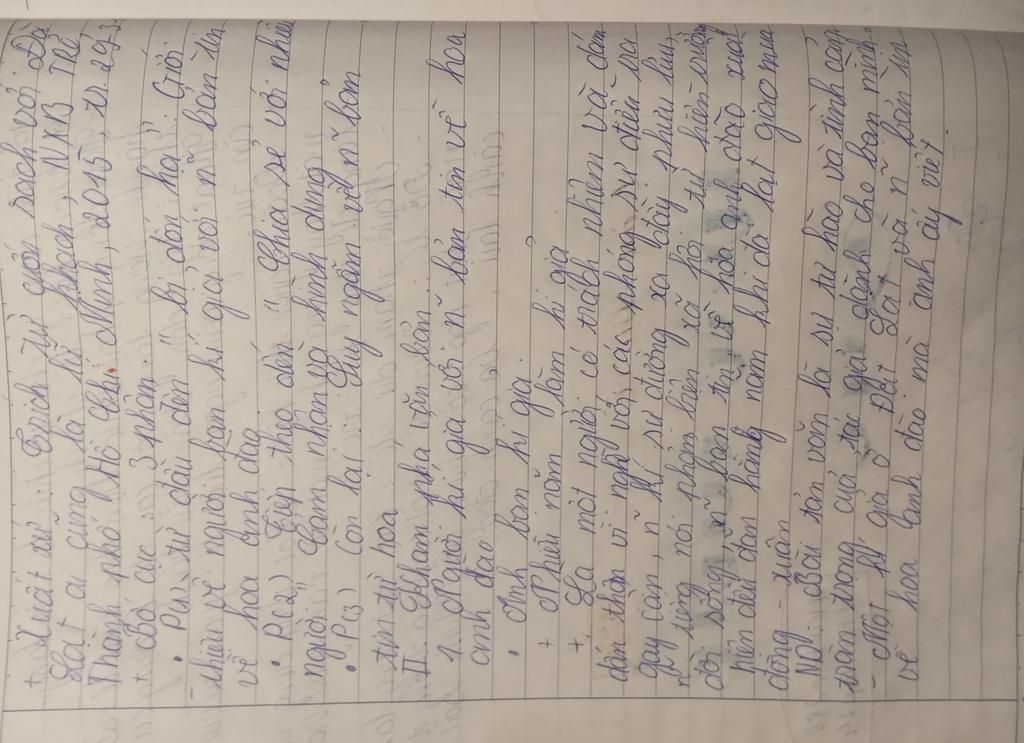 + Xuất xứ: Trích từ cuốn sách với Đà
Lạt ai cũng là lữ khách, NXB Trẻ
Thành phố Hồ Chí Minh, 2015 tr. 293.
+ Bố cục: 3 phần
• P(1) từ đầu đến "bị đón hạ": Giới
thiệu về người bạn kí giả với n~ bản tin
về hoa anh đào
• P(2) Tiếp theo đến "Chia sẻ với nhiều
người": Cảm nhận và hình dung
• P(3) Còn lại: Suy ngẫm về n~ bản
tin từ hoa
II. Khám phá văn bản
1. Người kí giả với n~ bản tin về hoa
anh đào
• Anh bạn kí giả
+ Nhiều năm làm kí giả
+ Là một người có trách nhiệm và dấn
thân vì nghề với các phóng sự điều tra
gay cấn, n~ kí sự đường xa đầy phiêu lưu,
n~ tiếng nói phản biện xã hội từ hiện trường
đời sống, n~ bản tin về hoa anh đào xuất
hiện đều đặn hàng năm khi đã hạt giao mùa
đông - xuân
NO: Bài tản văn là sự tự hào và tình cảm
trân trọng của tác giả dành cho bạn mình,
- Một kí giả ở Đà Lạt và n~ bản tin
về hoa anh đào mà anh ấy viết